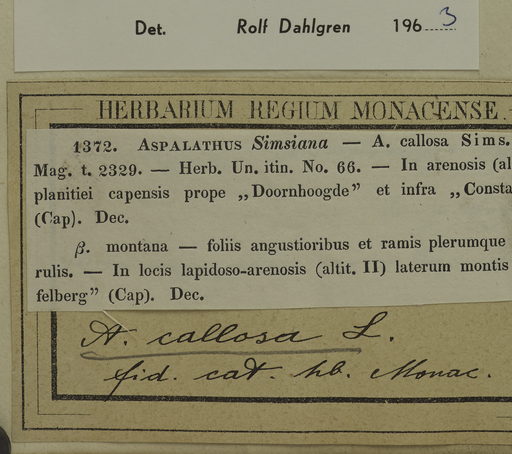 Det. Rolf Dahlgren 1963
HERBARIUM REGIUM MONACENSE.
1372. ASPALATHUS Simsiana — A. callosa Sims.
Mag. t. 2329. — Herb. Un. itin. No. 66. — In arenosis (al
planitiei capensis prope „Doornhoogde” et infra „Consta
(Cap). Dec.
β. montana — foliis angustioribus et ramis plerumque
rulis. — In locis lapidoso-arenosis (altit. II) laterum montis
felberg” (Cap). Dec.
A. callosa L.
fid. cat. hb. Monac.